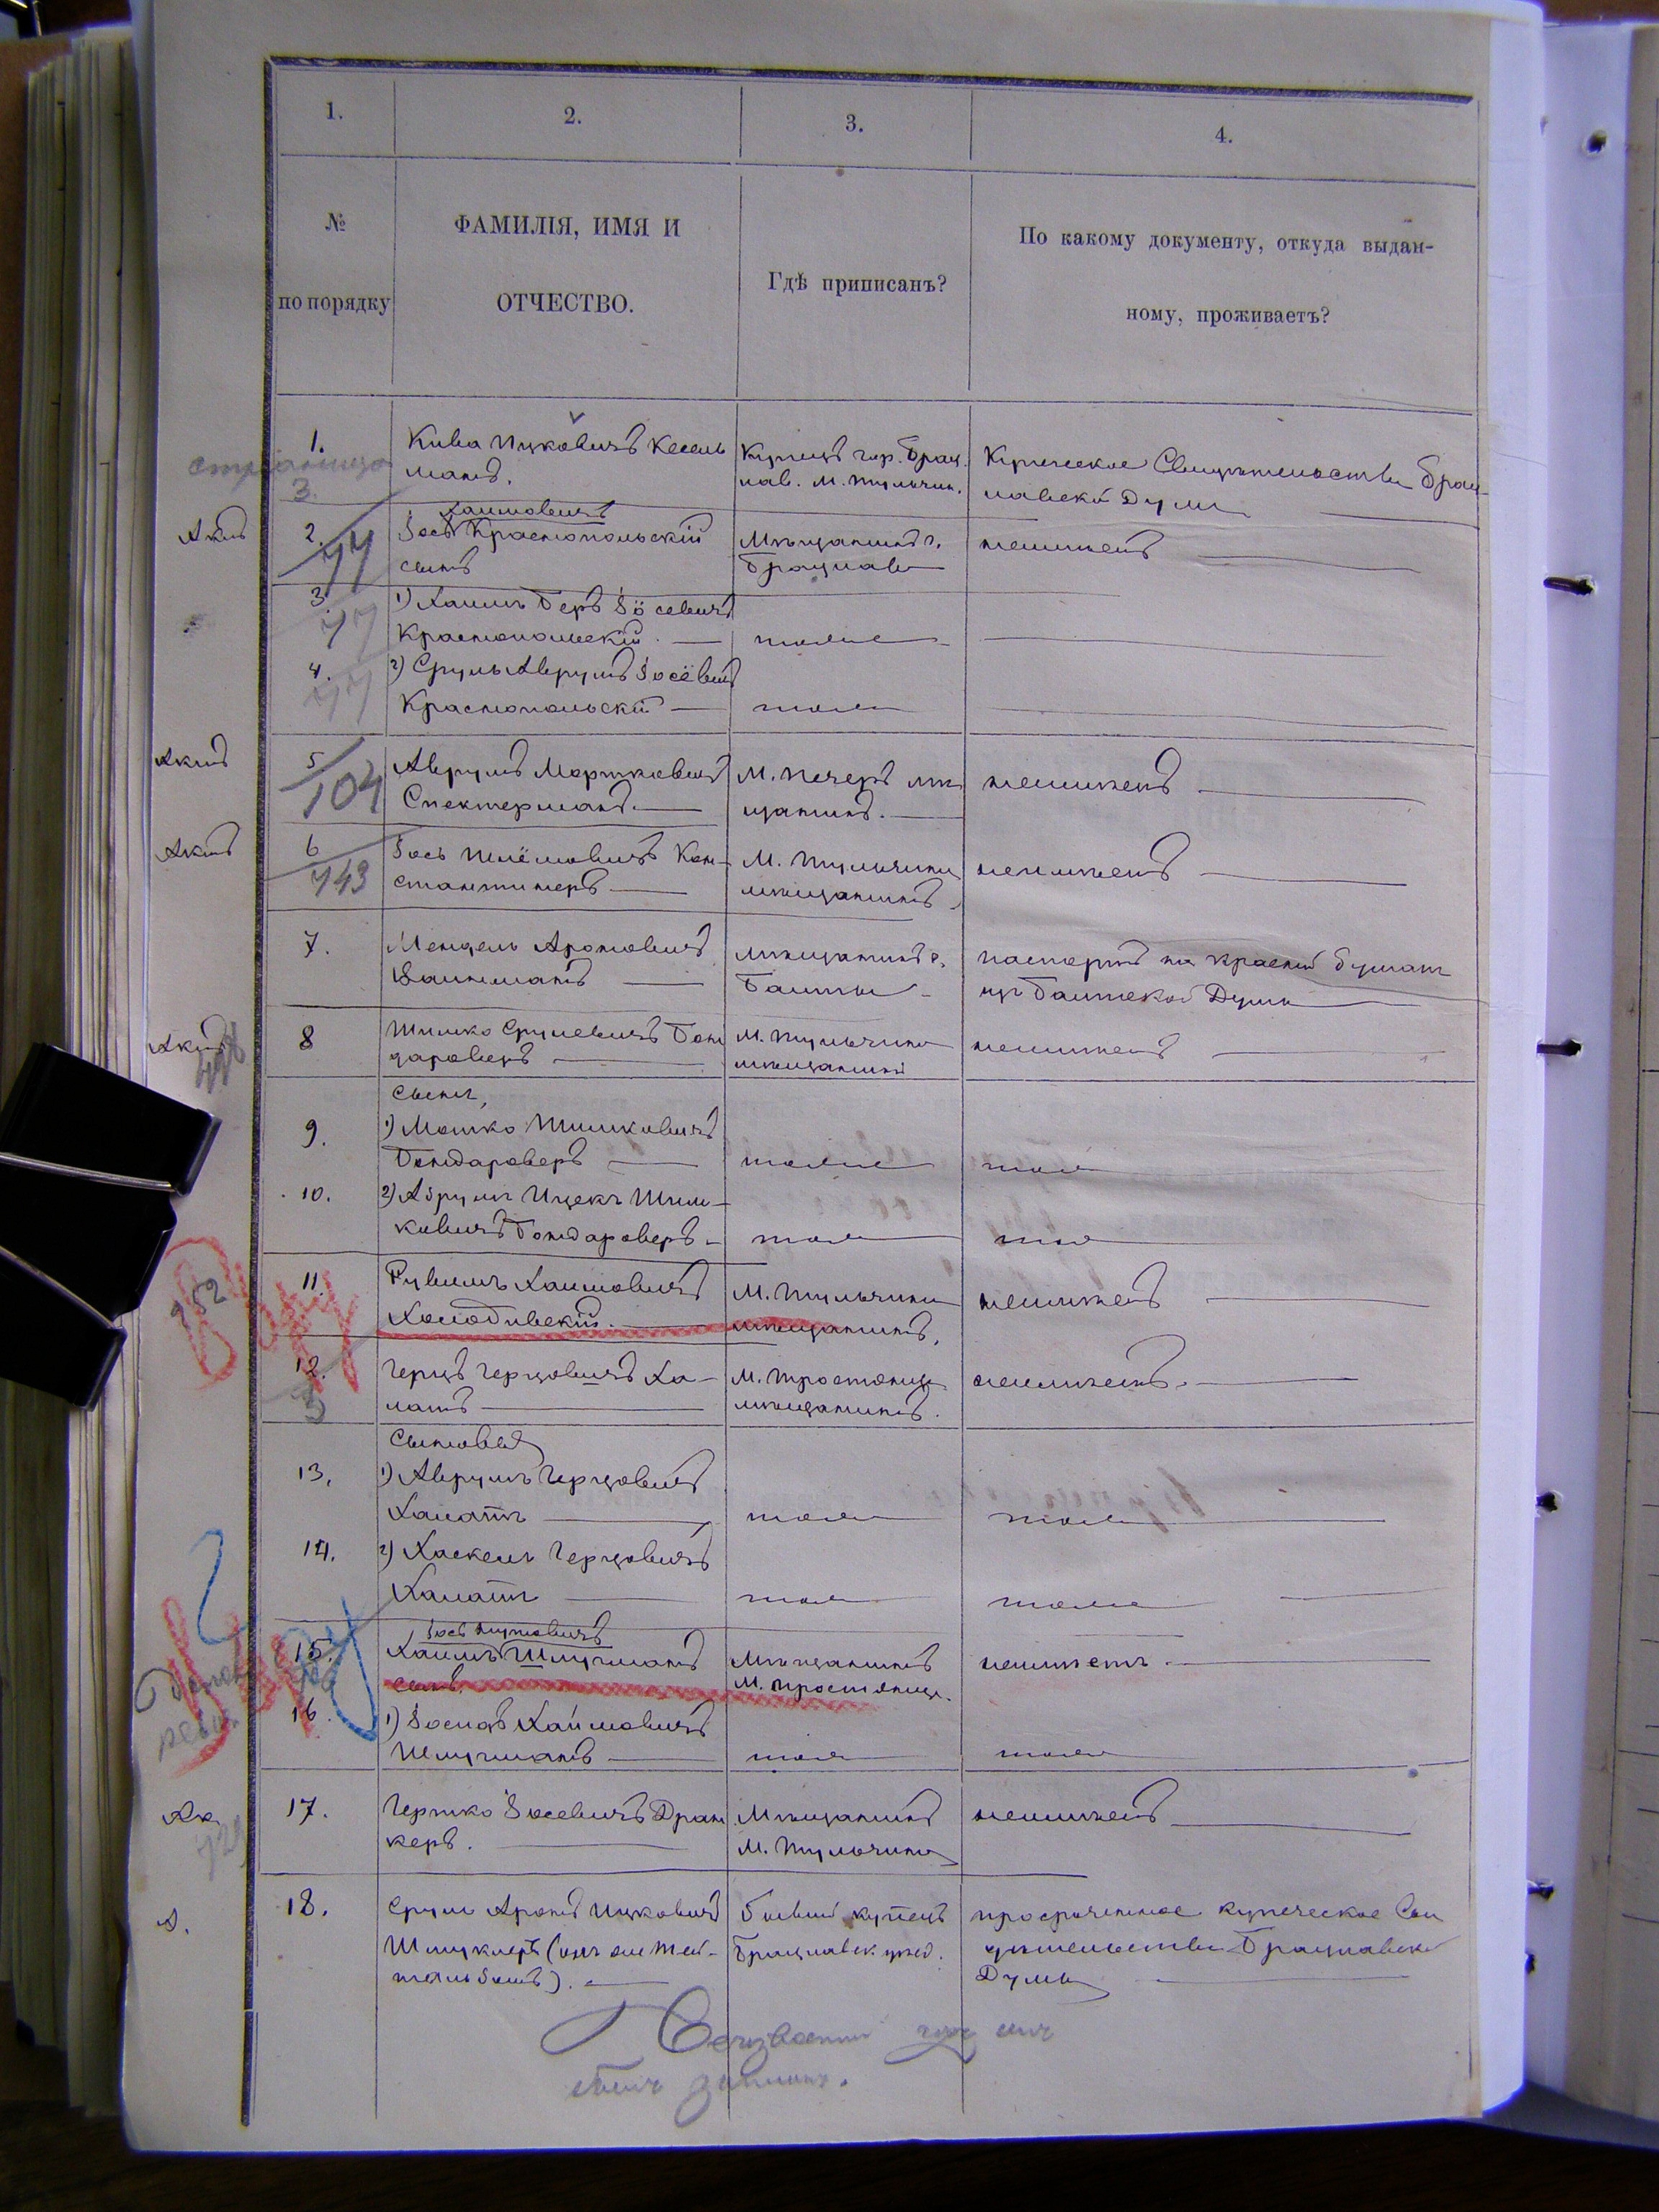 1.
2.
3.
4.
№ по порядку
ФАМИЛІЯ, ИМЯ И
ОТЧЕСТВО.
Гдѣ приписанъ?
По какому документу, откуда выдан-
ному, проживаетъ?
1.
3.
Кива Ицковичъ Кесель
манъ.
Купецъ гор. Брац.
лав. М. Тульчин.
Купеческое Свидѣтельство Брац-
лавской Думы
Акт
2.
77
Хаимовичъ
Іось Краснопольскій
сынъ
Мѣщанинъ г.
Брацлава
неимѣетъ
3.
77
1) Хаимъ Беръ Іосевичъ
Краснопольскій
тоже
4.
77
2) Сруль Аврумъ Іосевичъ
Краснопольскій
тоже
5
104
Аврумъ Мортковичъ
Спектерманъ.
М. Печеръ мѣ
щанинъ.
неимѣетъ
6
743
Іось Шлёмовичъ Кон-
стантинеръ
М. Тульчина
мѣщанинъ
неимѣетъ
7.
Мендель Ароновичъ
Вайнманъ
мѣщанинъ г.
Балты
паспортъ на красной бумагѣ
изъ Балтской Думы
8
Шимко Срулевичъ Бон
дароверъ
М. Тульчина
мѣщанинъ
неимѣетъ
сыны,
9.
1) Мошко Шимковичъ
Бондароверъ
тоже
тоже
10.
2) Абрумъ Ицекъ Шим-
ковичъ Бондароверъ
тоже
тоже
252
11.
Рувимъ Хаимовичъ
Холодивскій.
М. Тульчина
мѣщанинъ.
неимѣетъ
12.
3
Герцъ Герцовичъ Ха-
латъ
М. Тростянца
мѣщанинъ.
неимѣетъ.
Сыновья
13.
1) Аврумъ Герцовичъ
Халатъ
тоже
тоже
14.
2) Хаскель Герцовичъ
Халатъ
тоже
тоже
15.
Хаимъ Шлузманъ
сынъ.
Мѣщанинъ
М. Тростянца.
неимѣетъ.
16.
1) Іосифъ Хаимовичъ
Шлузманъ
тоже
тоже
17.
Гершко Іосевичъ Дран
керъ.
Мѣщанинъ
М. Тульчина
неимѣетъ
18.
Сруль Аронъ Ицковичъ
Шмуклеръ (онъ же Тей-
тельбомъ).
Бывшій купецъ
Брацлавск. уѣзд.
просроченное купеческое Сви
дѣтельство Брацлавской
Думы